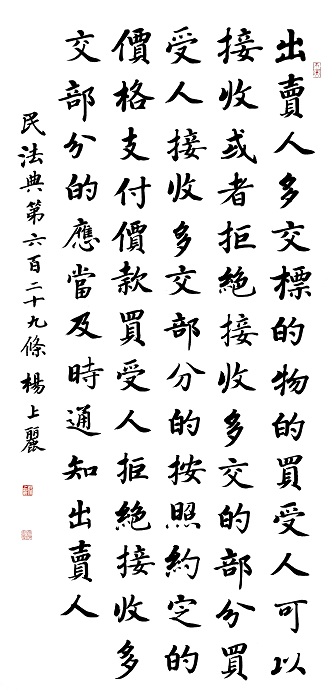 出賣人多交標的物的買受人可以
接收或者拒絕接收多交的部分買
受人接收多交部分的按照約定的
價格支付價款買受人拒絕接收多
交部分的應當及時通知出賣人
民法典第六百二十九條楊上麗